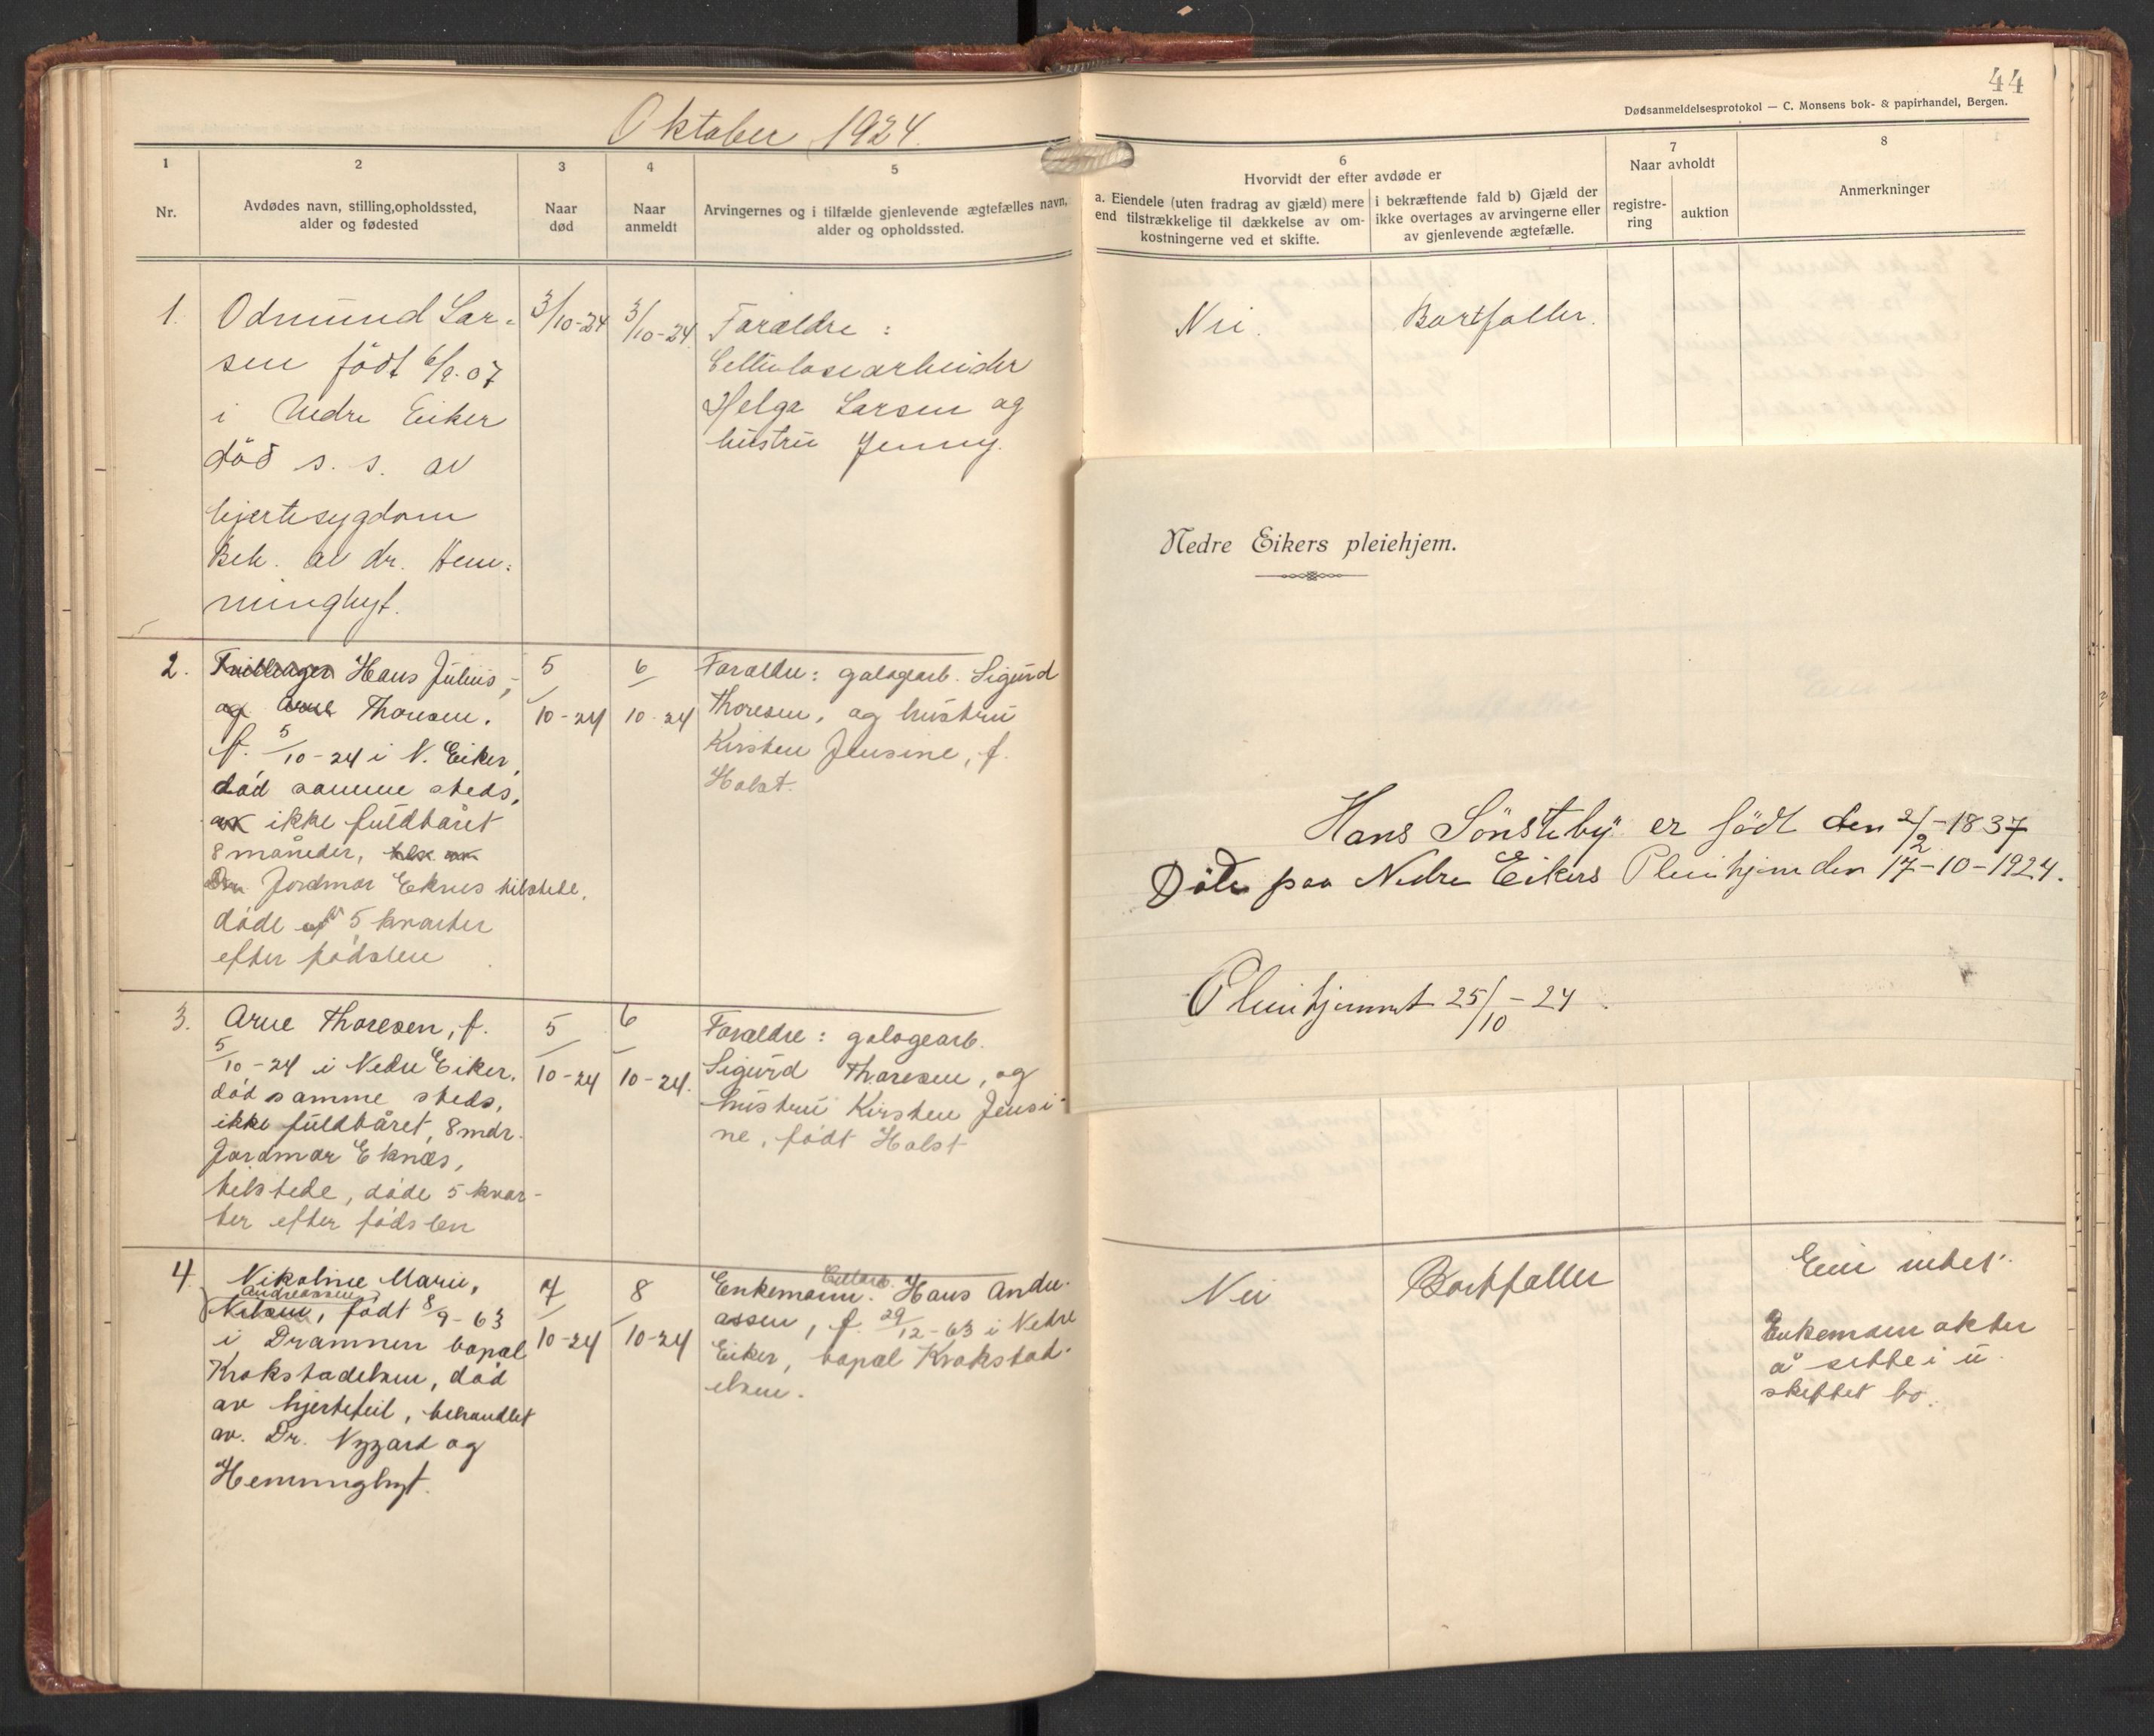 44
Dødsanmeldelsesprotokol — C. Monsens bok- & papirhandel, Bergen.
Oktober 1924.
1
2
3
4
5
Nr.
Avdødes navn, stilling, opholdssted,
alder og fødested
Naar
død
Naar
anmeldt
Arvingernes og i tilfælde gjenlevende ægtefælles navn,
alder og opholdssted.
6
Hvorvidt der efter avdøde er
a. Eiendele (uten fradrag av gjæld) mere
end tilstrækkelige til dækkelse av om-
kostningerne ved et skifte.
i bekræftende fald b) Gjæld der
ikke overtages av arvingerne eller
av gjenlevende ægtefælle.
7
Naar avholdt
registre-
ring
auktion
8
Anmerkninger
1.
Odmund Lar-
sen født 6/9.07
i Nedre Eiker
død s. s. av
hjertesygdom
Beh. av dr. Hem-
minghyt.
3/10-24
3/10-24
Forældre :
Cellulosearbeider
Helge Larsen og
hustru Jenny.
Nei.
Bortfaller.
2.
Hans Julius,
og Arne Thoresen.
f. 5/10-24 i N. Eiker,
død samme steds,
ikke fuldbåret
8 måneder,
Jordmor Eknes tilstede,
døde 5 kvarter
efter fødslen
5/10-24
6/10-24
Forældre: galogearb. Sigurd
Thoresen, og hustru
Kirsten Jensine, f.
Holst.
3.
Arne Thoresen, f.
5/10-24 i Nedre Eiker.
død samme steds,
ikke fuldbåret, 8 mdr.
Jordmor Eknæs,
tilstede, døde 5 kvar-
ter efter fødslen
5/10-24
6/10-24.
Forældre: galogearb.
Sigurd Thoresen, og
hustru Kirsten Jensi-
ne, født Holst
4.
Nikoline Marie,
Andreassen
Nilsen, født 8/9-63
i Drammen bopæl
Krokstadelven, død
av hjertefeil, behandlet
av. Dr. Nyzard og
Hemminghyt.
7/10-24
8/10-24
Cellarb.
Enkemann. Hans Andre-
assen, f. 29/12-63 i Nedre
Eiker, bopæl Krokstad-
elven.
Nei
Bortfaller
Eier intet.
Enkemann akter
å sitte i u-
skiftet bo.
Nedre Eikers pleiehjem.
Hans Sönsteby er född den 2/2-1837
Döde paa Nedre Eikers Pleiehjem den 17-10-1924.
Pleiehjemmet 25/10-24